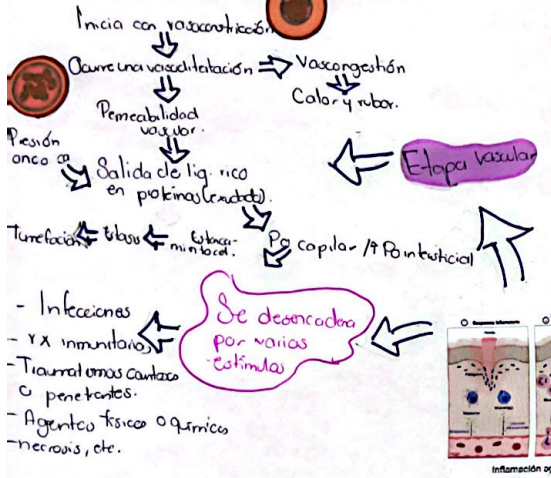 Inicia con vasoconstricción
Ocurre una vasodilatación
Vascongestión
Calor y rubor.
Permeabilidad
vascular.
Presión
Salida de liq. rico
en proteínas (exudado).
Etapa vascular
Tumefacción
Po capilar / ↑ Po intersticial
Se desencadena
por varios
estímulos
- Infecciones
- rx inmunitarias
- Traumatomas
o penetrantes.
- Agentes físicos o químicos
- necrosis, etc.
Inflamación